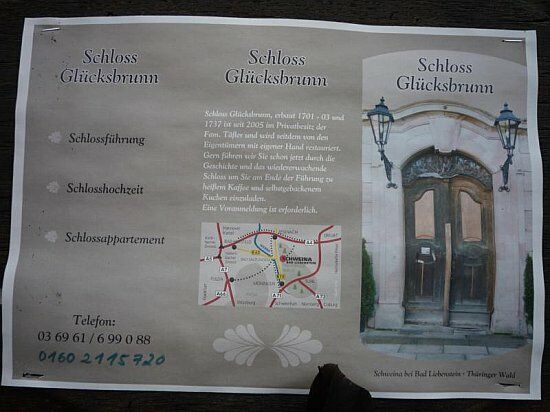 Schloss
Glücksbrunn
Schlossführung
Schlosshochzeit
Schlossappartement
Telefon:
03 69 61 / 6 99 0 88
0160 2115720
Schloss
Glücksbrunn
Schloss Glücksbrunn, erbaut 1701 - 03 und
1737 ist seit 2005 im Privatbesitz der
Fam. Täfler und wird seitdem von den
Eigentümern mit eigener Hand restauriert.
Gern führen wir Sie schon jetzt durch die
Geschichte und das wiedererwachende
Schloss um Sie am Ende der Führung zu
heißem Kaffee und selbstgebackenem
Kuchen einzuladen.
Eine Voranmeldung ist erforderlich.
Hannover
Kassel
EISENACH
ERFURT
A4
SCHWEINA
BAD LIEBENSTEIN
A7
FULDA
MEININGEN
SUHL
Frankfurt
Würzburg
A71
Schweinfurt
A73
Coburg
Schloss
Glücksbrunn
Schweina bei Bad Liebenstein · Thüringer Wald